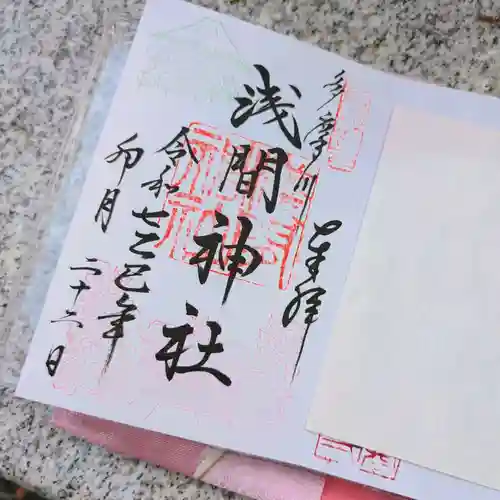 奉拝
多摩川
浅間神社
令和七乙巳年
卯月
二十六日